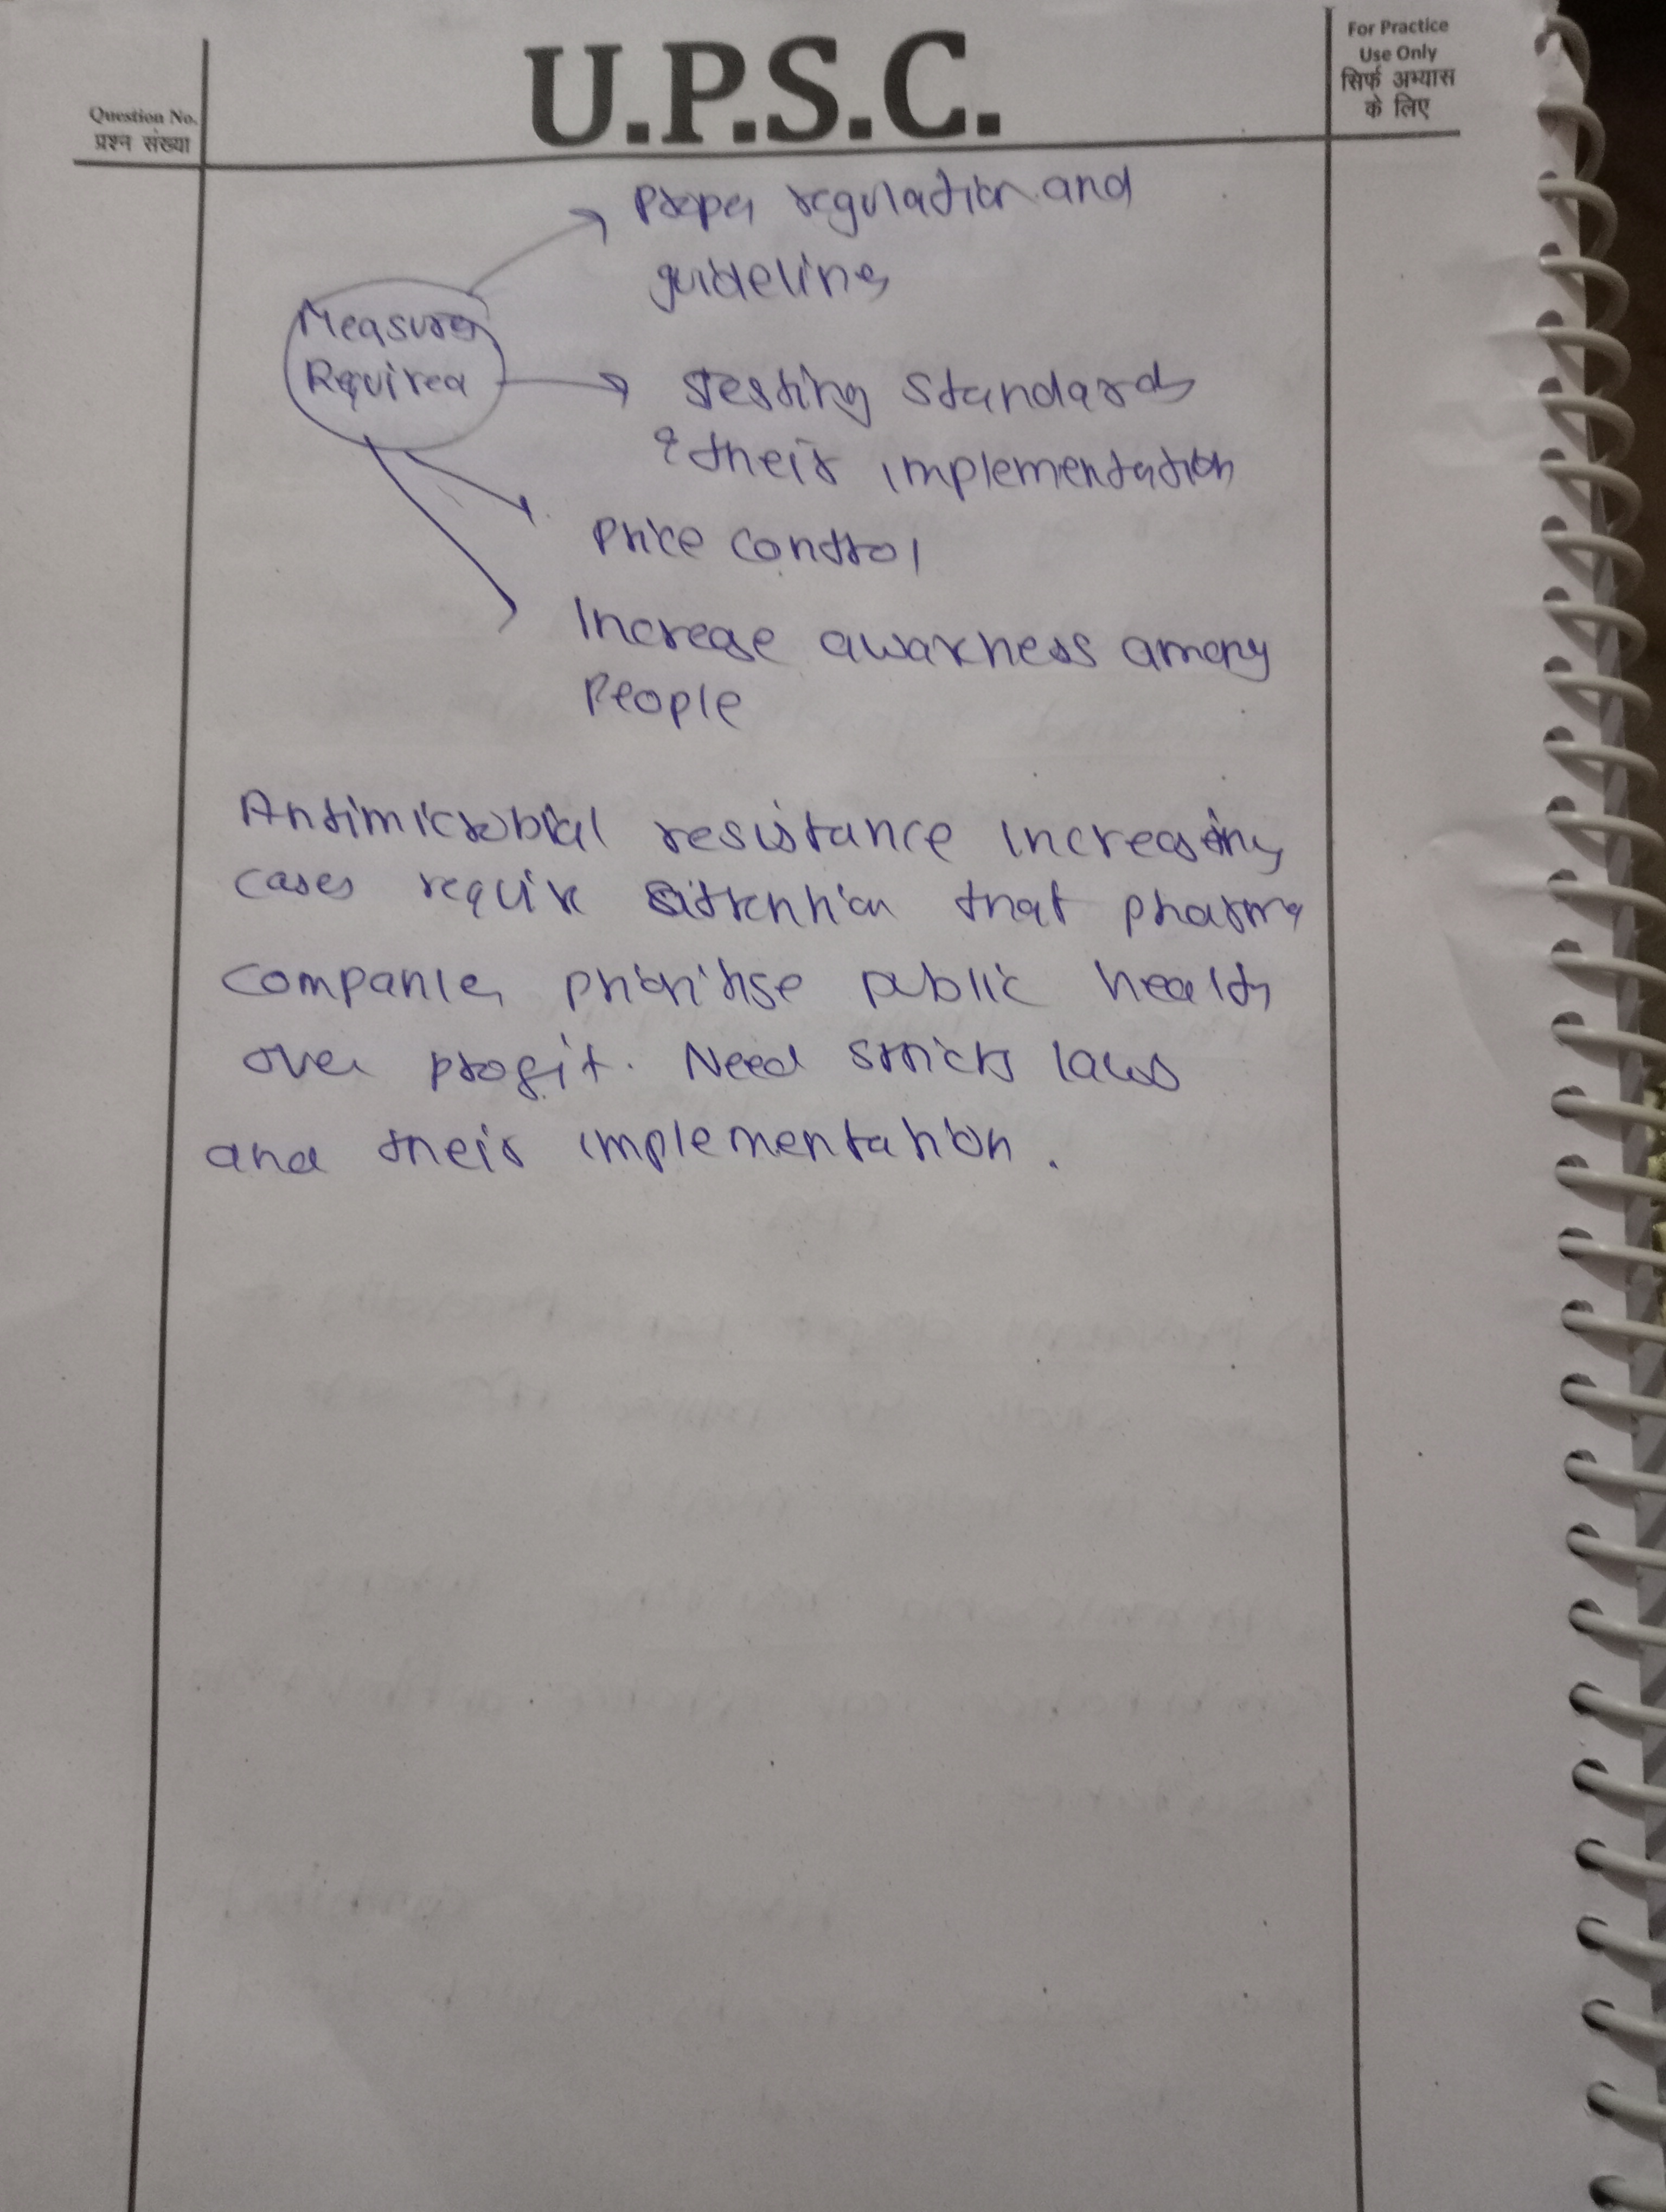 Question No.
प्रश्न संख्या
U.P.S.C.
For Practice
Use Only
सिर्फ अभ्यास
के लिए
Proper regulation and
guidelines
Measures
Required
Testing standards
& their implementation
Price control
Increase awareness among
People
Antimicrobial resistance increasing
cases require attention that pharma
companies prioritise public health
over profit. Need stricts laws
and their implementation.